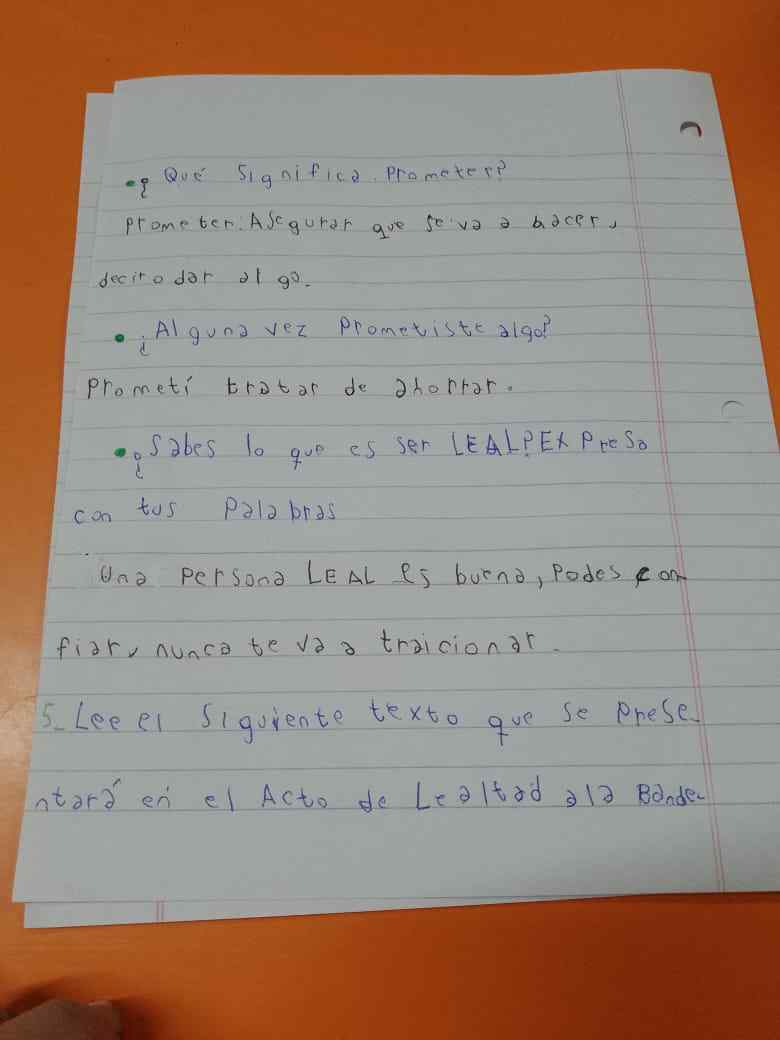 • ¿Qué Significa Prometer?
Prometer: Asegurar que se va a hacer,
decir o dar algo.
• ¿Alguna vez Prometiste algo?
Prometí tratar de ahorrar.
• ¿Sabes lo que es ser LEAL? EXPreSa
con tus Palabras
Una Persona LEAL es buena, Podes con
fiar, nunca te va a traicionar.
5_ Lee el Siguiente texto que se PreSe_
ntará en el Acto de Lealtad a la Bande_